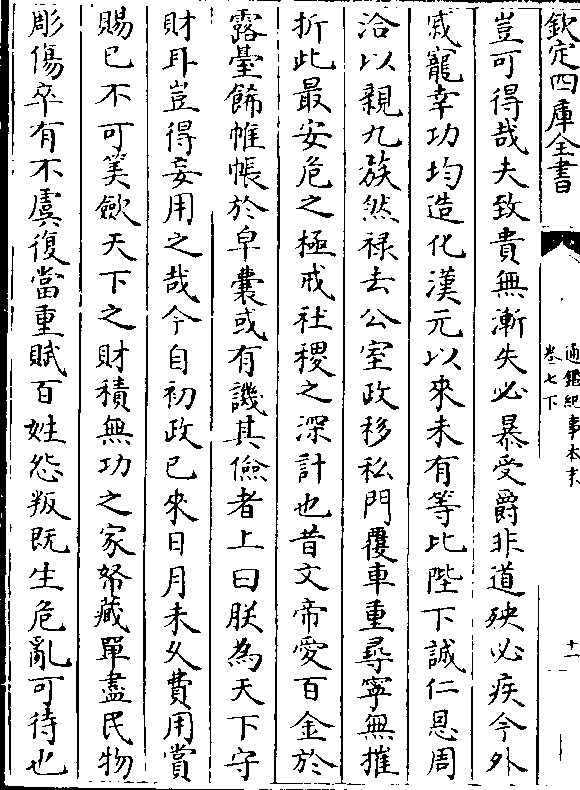 欽定四庫全書
通鑑紀事本末
卷七下
十一
豈可得哉夫致貴無漸失必暴受爵非道殃必疾今外
戚寵幸功均造化漢元以來未有等比陛下誠仁恩周
洽以親九族然禄去公室政移私門覆車重尋寧無摧
折此最安危之極戒社稷之深計也昔文帝愛百金於
露臺飾帷帳於皁囊或有譏其儉者上曰朕為天下守
財耳豈得妄用之哉今自初政已來日月未久費用賞
賜已不可筭歛天下之財積無功之家帑藏單盡民物
彫傷卒有不虞復當重賦百姓怨叛既生危亂可待也